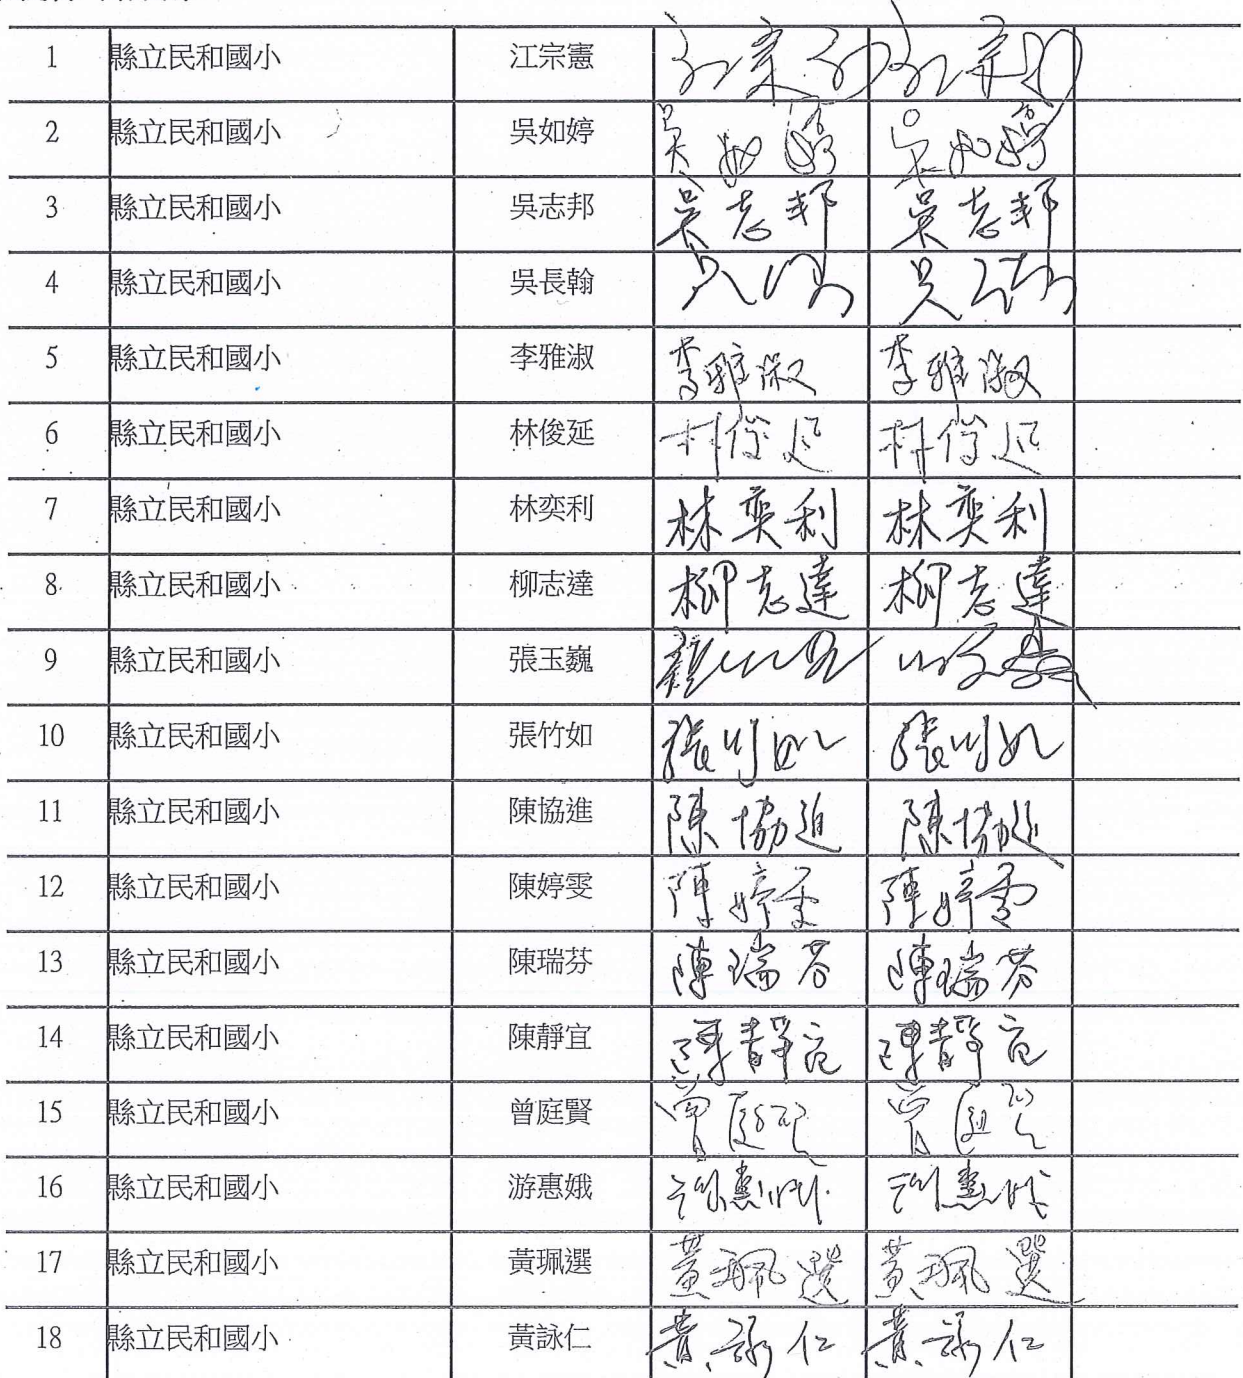 1 縣立民和國小 江宗憲
2 縣立民和國小 吳如婷 吳如婷 吳如婷
3 縣立民和國小 吳志邦 吳志邦 吳志邦
4 縣立民和國小 吳長翰
5 縣立民和國小 李雅淑 李雅淑 李雅淑
6 縣立民和國小 林俊延 林俊延 林俊延
7 縣立民和國小 林奕利 林奕利 林奕利
8 縣立民和國小 柳志達 柳志達 柳志達
9 縣立民和國小 張玉巍
10 縣立民和國小 張竹如 張竹如 張竹如
11 縣立民和國小 陳協進 陳協進 陳協進
12 縣立民和國小 陳婷雯 陳婷雯 陳婷雯
13 縣立民和國小 陳瑞芬 陳瑞芬 陳瑞芬
14 縣立民和國小 陳靜宜 陳靜宜 陳靜宜
15 縣立民和國小 曾庭賢 曾庭賢 曾庭賢
16 縣立民和國小 游惠娥 游惠娥 游惠娥
17 縣立民和國小 黃珮選 黃珮選 黃珮選
18 縣立民和國小 黃詠仁 黃詠仁 黃詠仁